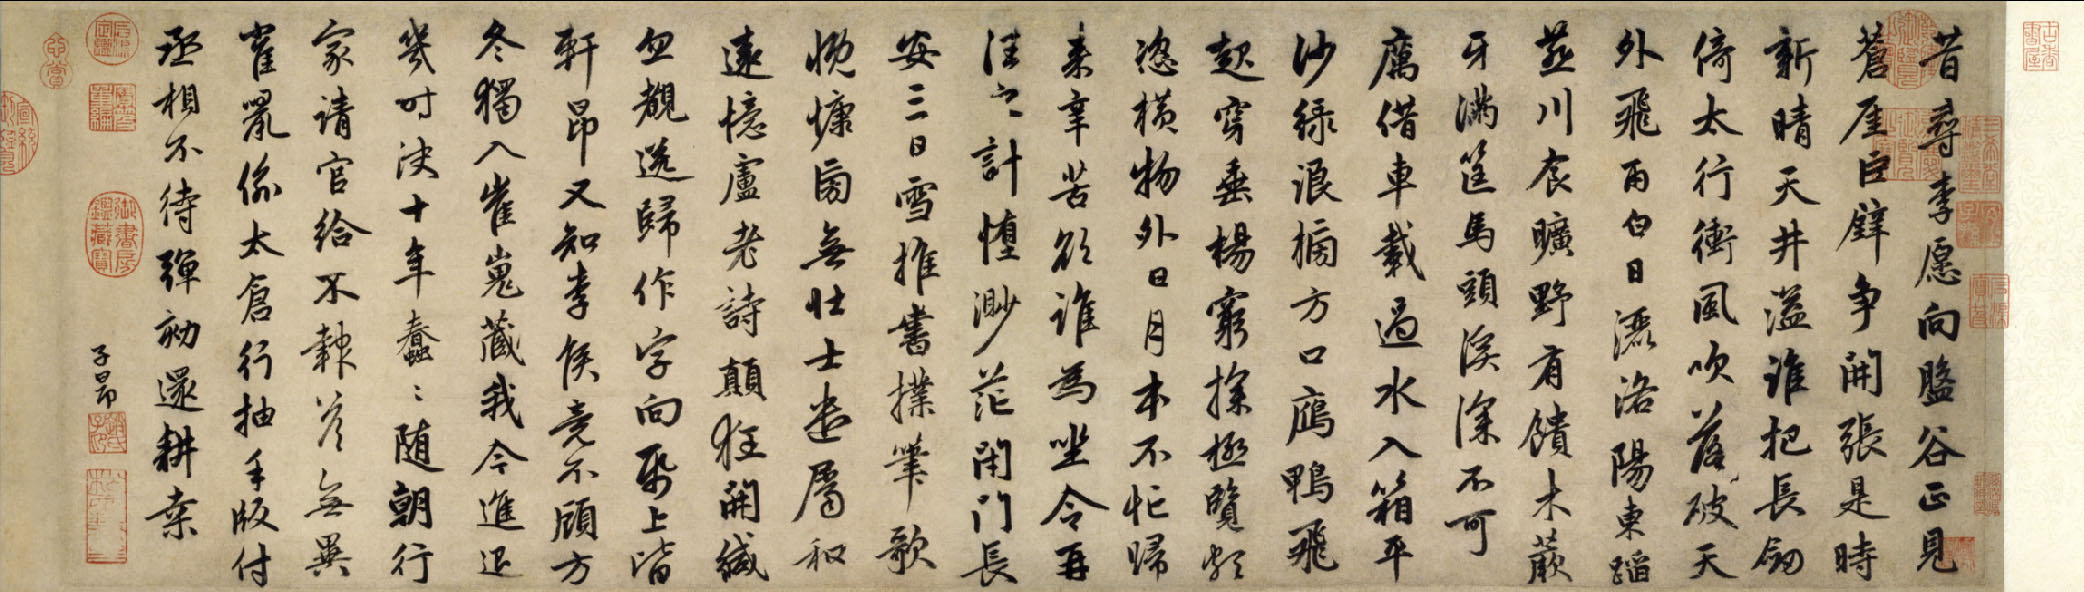 昔尋李愿向盤谷正見
蒼厓巨壁爭開張是時
新晴天井溢誰把長劒
倚太行衝風吹落破天
外飛雨白日灑洛陽東蹈
燕川食曠野有饋木蕨
牙滿筐馬頭溪深不可
厲借車載過水入箱平
沙綠浪榜方口鴈鴨飛
起穿垂楊窮探極覽頗
恣橫物外日月本不忙歸
来辛苦欲誰為坐令再
往之計墮渺茫閉門長
安三日雪推書撲筆歌
慨慷旁無壯士遣屬和
遠憶盧老詩顛狂開緘
忽覩送歸作字向紙上皆
軒昂又知李侯竟不顧方
冬獨入崔嵬藏我今進退
幾时決十年蠢〻随朝行
家請官給不報答無異
雀鼠偷太倉行抽手版付
丞相不待彈劾還耕桒
子昂
御書房鑑藏寶